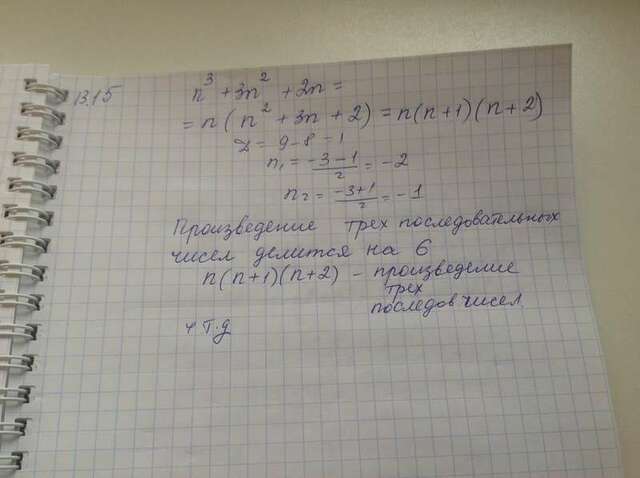 13.15
n³ + 3n² + 2n =
= n(n² + 3n + 2) = n(n+1)(n+2)
D = 9 - 8 = 1
n₁ = (-3-1)/2 = -2
n₂ = (-3+1)/2 = -1
Произведение трех последовательных
чисел делится на 6
n(n+1)(n+2) - произведение
трех
последов чисел.
ч т.д